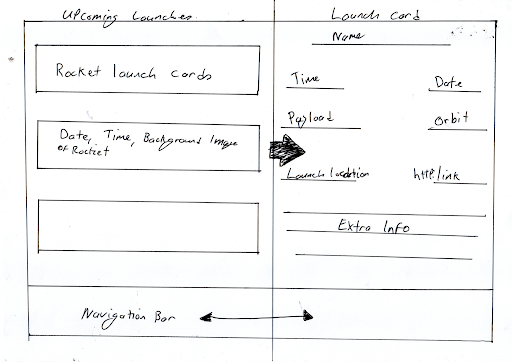 Upcoming Launches
Rocket launch cards
Date, Time, Background Image
of Rocket
Launch Card
Name
Time
Date
Payload
Orbit
Launch location
http/link
Extra Info
Navigation Bar